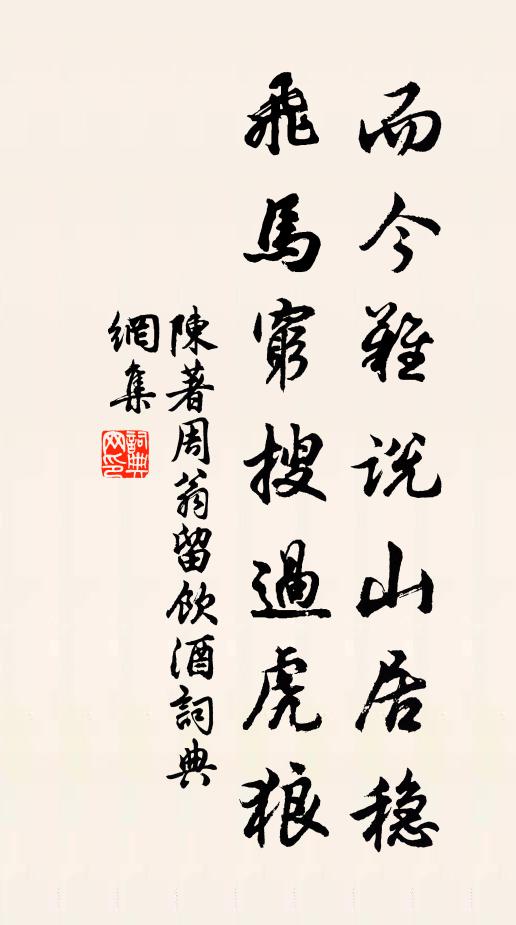 而今難説山居穏
飛馬窮搜過虎狼
陳著周翁留飲酒詞典
網集
詞典
网印